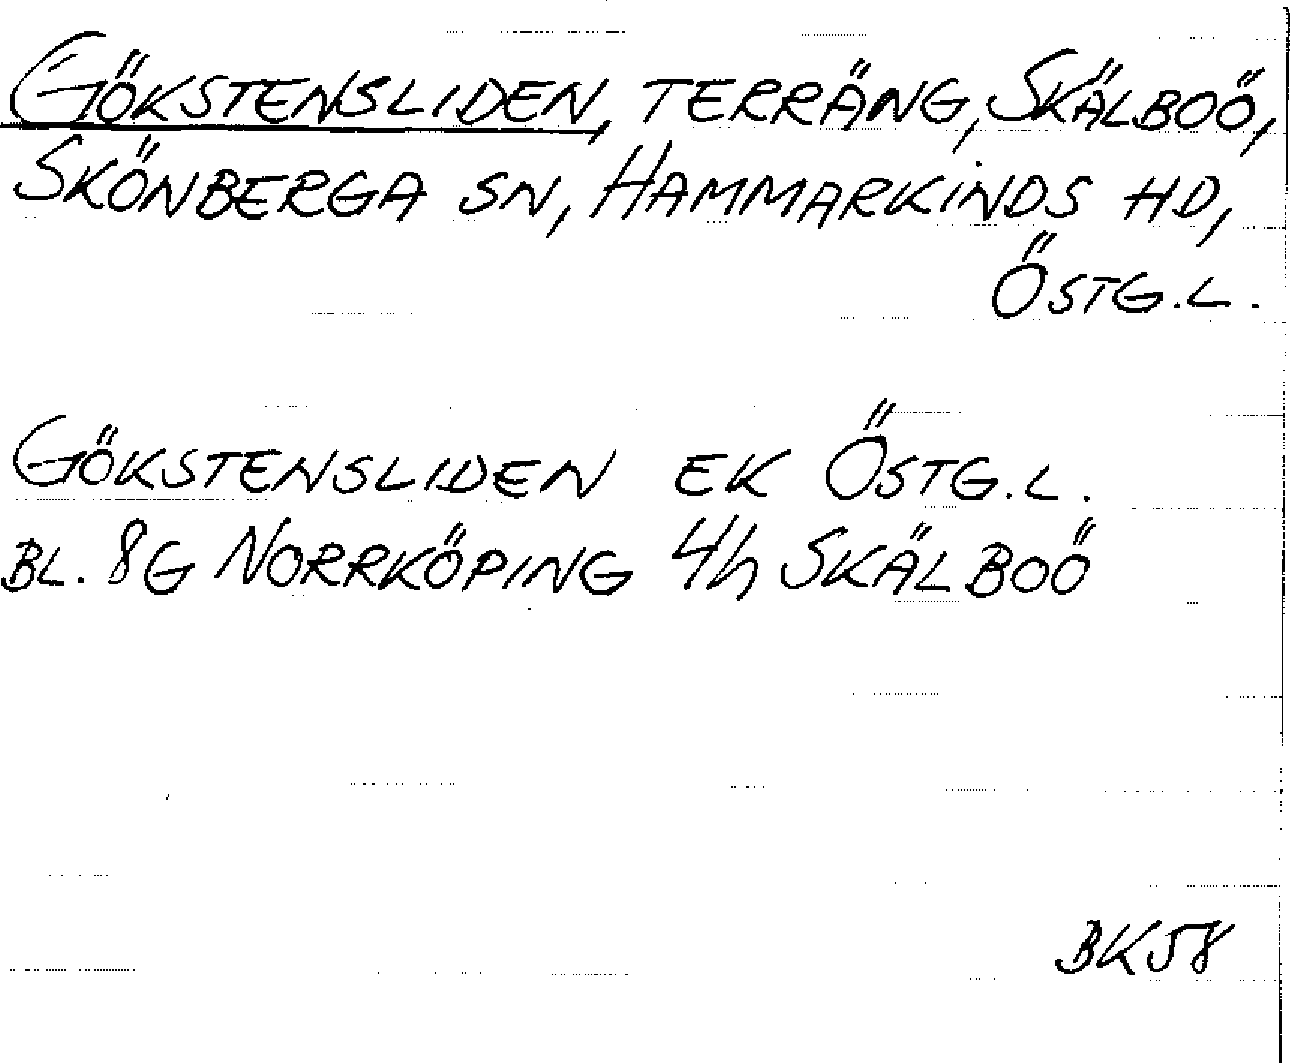 GÖKSTENSLIDEN, TERRÄNG, SKÄLBOÖ,
SKÖNBERGA SN, HAMMARKINDS HD,
ÖSTG.L.
GÖKSTENSLIDEN EK ÖSTG.L.
BL. 8G NORRKÖPING 4h SKÄLBOÖ
BK58